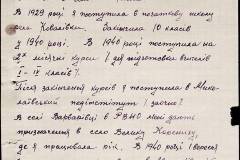 В 1929 році я поступила в початкову школу
села Ковалівки. Закінчила 10 класів
у 1940 році. В 1940 році поступила на
2х місячні курси для підготовки вчителів
I – IV класів.
Після закінчення курсів я поступила в Мико-
лаївський педінститут (заочно)
В селі Варварівці в РВНО мені дали
призначення в село Велику Коренiху,
де я працювала рік. В 1940 році (вересня